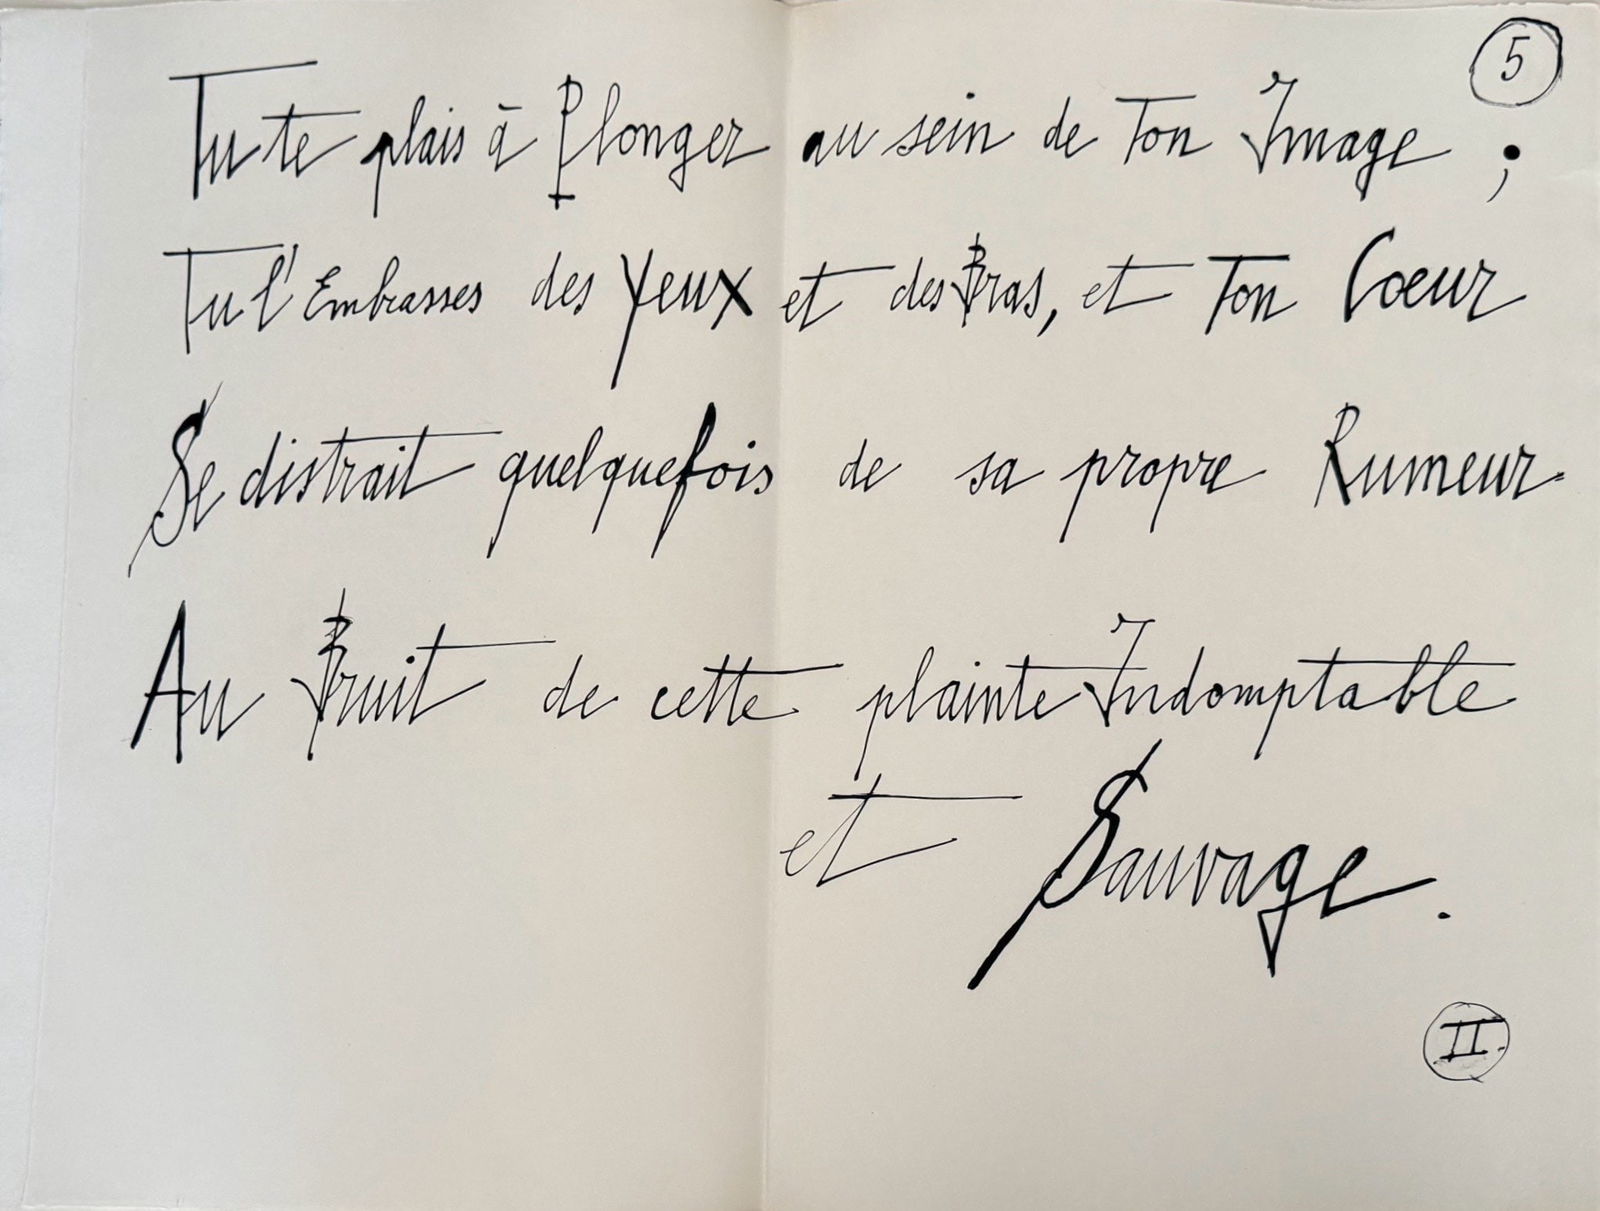 5
Tu te plais à Plonger au sein de Ton Image ;
Tu l'Embrasses des Yeux et des Bras, et Ton Cœur
Se distrait quelquefois de sa propre Rumeur
Au Bruit de cette plainte Indomptable
et Sauvage.
II.